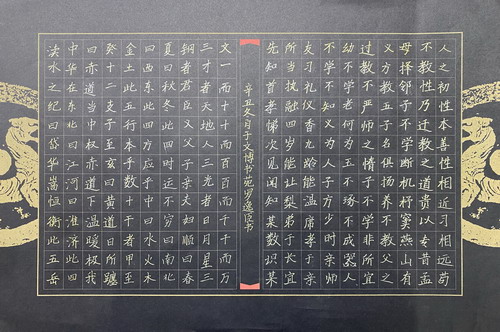 人之初性本善性相近习相远苟
不教性乃迁教之道贵以专昔孟
母择邻子不学断机杼窦燕山有
义方教五子名俱扬养不教父之
过教不严师之惰子不学非所宜
幼不学老何为玉不琢不成器人
不学不知义为人子方少时亲师
友习礼仪香九龄能温席孝于亲
所当执融四岁能让梨弟于长宜
先知首孝悌次见闻知某数识某
辛丑冬日于文博书苑罗逸臣书
文一而十十而百百而千千而万
三才者天地人三光者日月星三
纲者君臣义父子亲夫妇顺曰春
夏曰秋冬此四时运不穷曰南北
曰西东此四方应乎中曰水火木
金土此五行本乎数十干者甲至
癸十二支子至亥曰黄道日所躔
曰赤道当中权赤道下温暖极我
中华在东北曰江河曰淮济此四
渎水之纪曰岱华嵩恒衡此五岳